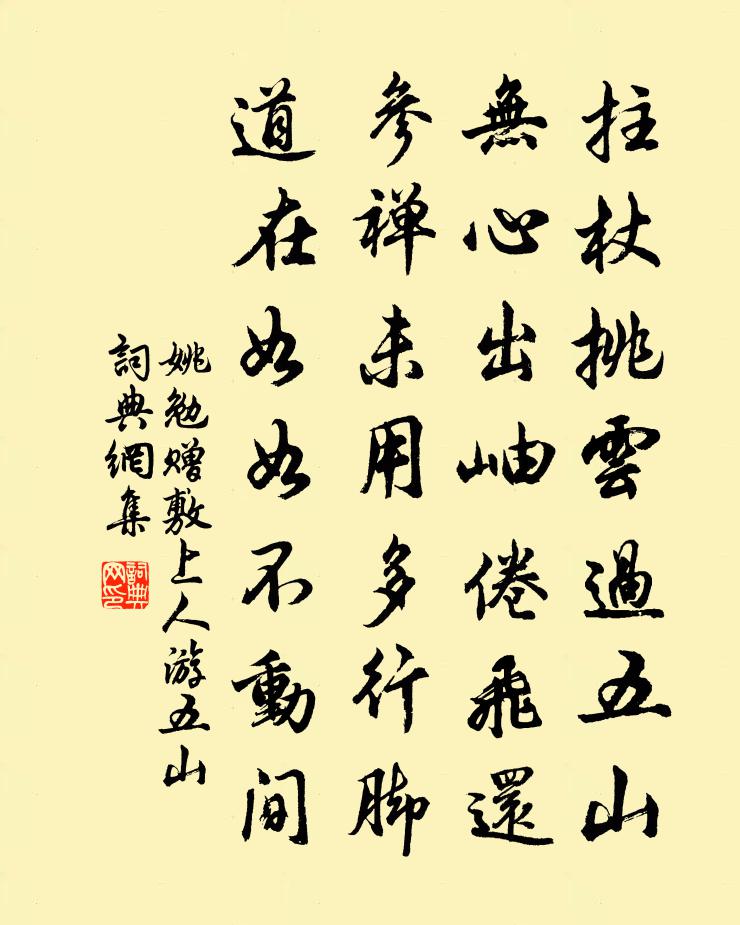 拄杖挑雲過五山
無心出岫倦飛還
參禅未用多行脚
道在如如不動間
姚勉赠敷上人游五山
詞典網集
詞典网印